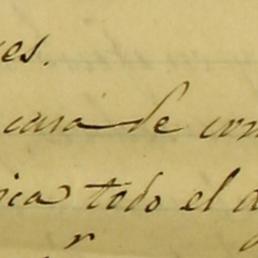 es.
casa de con
ica todo el d